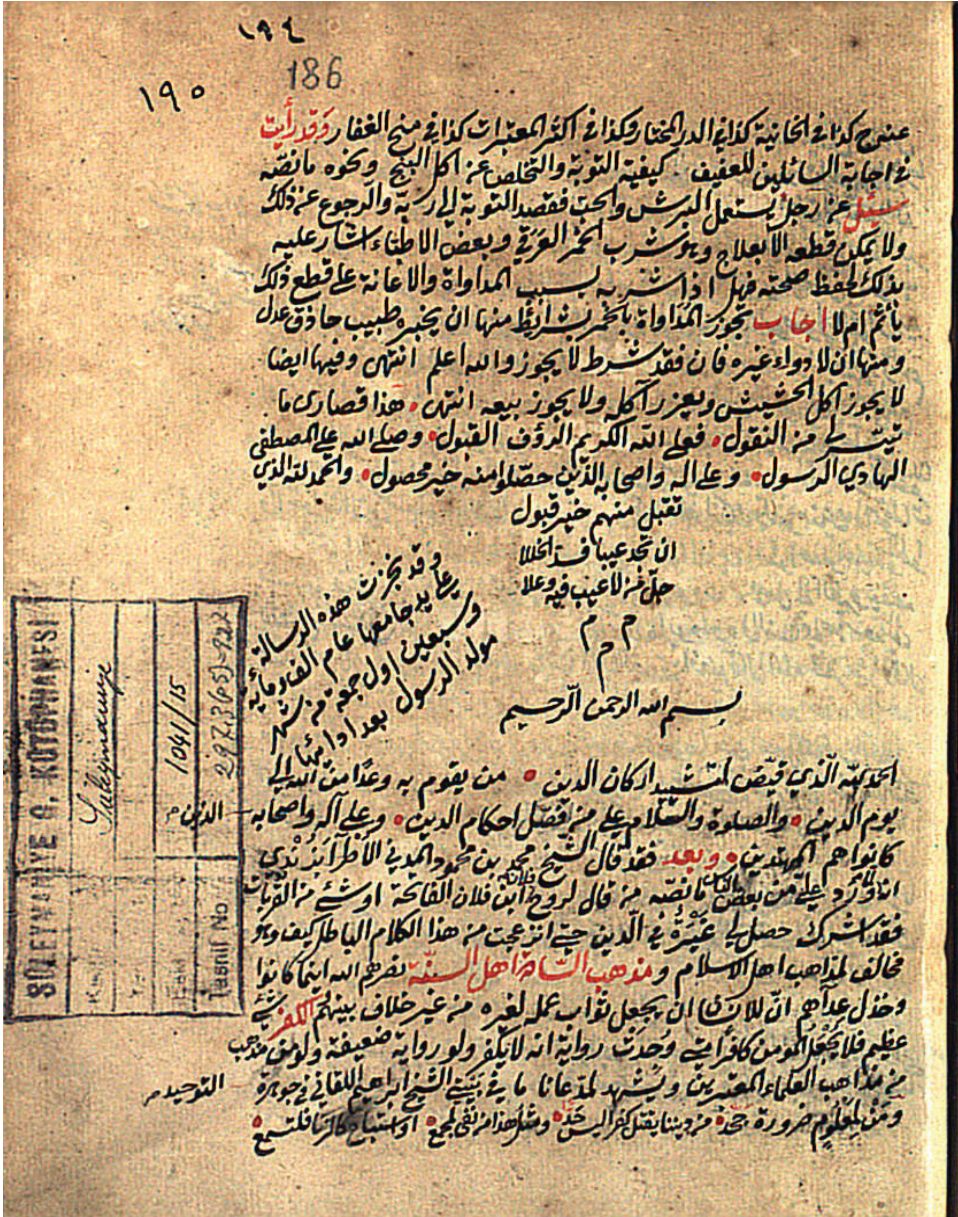 ١٩٤
186
١٩٥
عنهم كذا في الخانية كذا في الدر المختار وكذا في اكثر المعتبرات كذا في منح الغفار وقد رأيت
في اجابة السائلين للعفيف كيفية التوبة والتخلص عن اكل البنج ونحوه ما نصه
سئل عن رجل يستعمل البرش والحب فقصد التوبة الى ربه والرجوع عن ذلك
ولا يمكن قطعه الا بعلاج وهو شرب الخمر العرقي وبعض الاطباء اشار عليه
بذلك لحفظ صحته فهل اذا شربه بسبب المداواة والاعانة على قطع ذلك
يأثم ام لا اجاب تجوز المداواة بالخمر بشرائط منها ان يخبره طبيب حاذق عدل
ومنها ان لا دواء غيره فان فقد شرط لا يجوز والله اعلم انتهى وفيها ايضا
لا يجوز اكل الحشيش ويعزر آكله ولا يجوز بيعه انتهى هذا قصارى ما
تيسر لي من النقول فعلى الله الكريم الرؤف القبول وصلى الله على المصطفى
الهادي الرسول وعلى اله واصحابه الذين حصلوا منه خير محصول والحمد لله الذي
تقبل منهم خير قبول
ان تجد عيبا فسد الخللا
جل من لا عيب فيه وعلا
م م م
وقد نجزت هذه الرسالة
على يد جامعها عام الف ومائة
وسبعين اول جمعة من شهر
مولد الرسول
بسم الله الرحمن الرحيم
الحمد لله الذي قيض لتشييد اركان الدين من يقوم به وعدا من الله الى
يوم الدين والصلوة والسلام على من فصل احكام الدين وعلى آله واصحابه الذين
كانوا هم المهتدين وبعد فقد قال الشيخ محمد بن محمود المدني الاطرابزندي
انه ورد علي من بعض ما نصه من قال لروح ابن فلان الفاتحة او شئ من القربات
فقد اشرك حصل لي غيرة في الدين حتى انزعجت من هذا الكلام الباطل كيف وهو
مخالف لمذاهب اهل الاسلام ومذهب السادة اهل السنة نصرهم الله اينما كانوا
وخذل عداهم ان للانسان ان يجعل ثواب عمله لغيره من غير خلاف بينهم الكفر شئ
عظيم فلا يجعل المؤمن كافرا متى وجدت رواية انه لا يكفر ولو رواية ضعيفة ولو من مذهب
من مذاهب العلماء المعتبرين ويشهد لمدعانا ما في بيتي الشيخ ابراهيم اللقاني في جوهرة التوحيد
ومن لمعلوم ضرورة جحد من ديننا يقتل كفرا ليس حد ومثل هذا من نفى لمجمع او استباح كالزنا فلتسمع
SÜLEYMANİYE G. KÜTÜPHANESİ
Süleymaniye
1041/15
Tasnif No